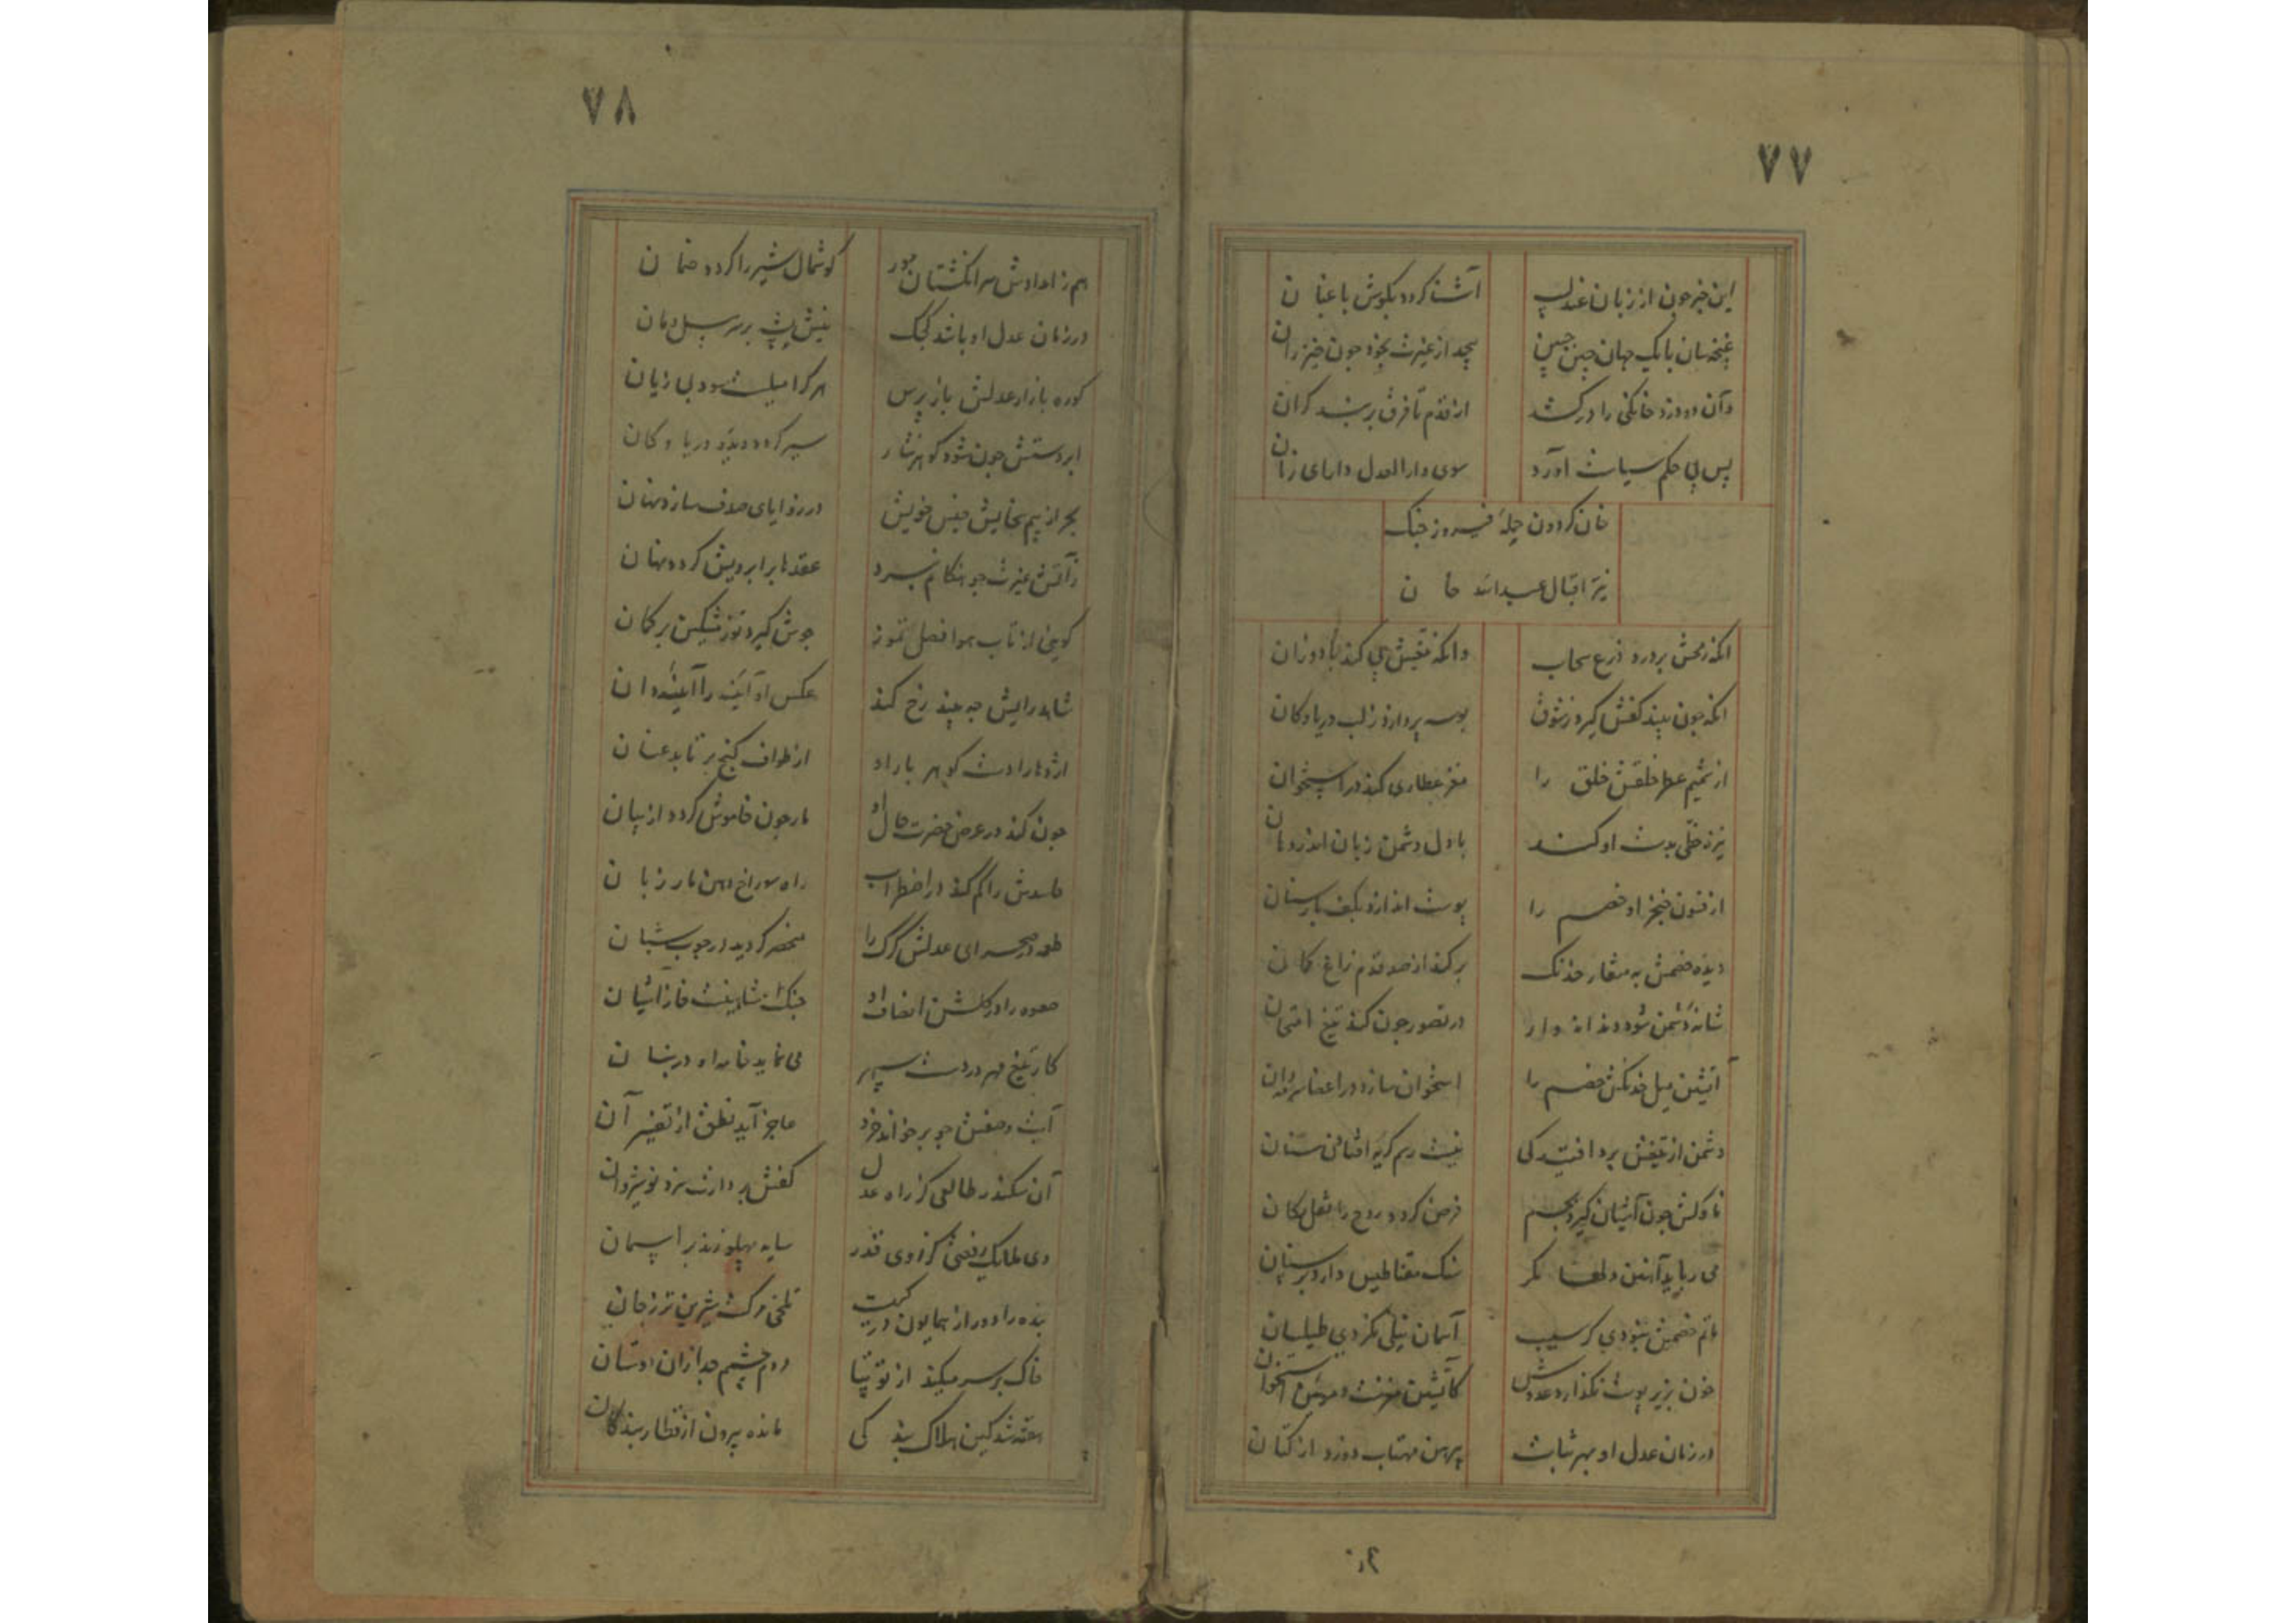 ۷۷
این خبر چون از زبان عندلیب آشنا کردد بکوش باغبان
غنچه سان با یک جهان چین جبین پیچد از غیرت بخود چون خیزران
وآن دو دزد خانکی را درکشد از قدم تا فرق بربند کران
پس پی حکم سیاست آورد سوی دار العدل دارای زمان
خان کردون فیروز جنک
نیّر اقبال عبدالله خان
انکه رمحش بردرد درع سحاب وانکه تیغش پی کند باد وزان
انکه چون بیند کفش کیرد ز شوق بوسه بردارد ز لب دریا و کان
از شمیم عطر خلقش خلق را مغز عطاری کند در استخوان
نیزه خطّی بدست او کند با دل دشمن زبان اندر دهان
از فنون خنجر او خصم را پوست اندازد بکف
دیده خصمش به منقار خدنک برکند از صد قدم زاغ کمان
شانهٔ دشمن شود دندانه دار در تصور چون کند تیغ امتحان
آتشین میل خدنکش خصم را استخوان سازد در اعضا سرمه دان
دشمن از تیغش برد افتیدکی نیست رسم کریه افتادن ستان
ناوکش چون آشیان کیرد بجسم فرض کردد روح را نقل مکان
می رباید آهنین دلها مکر سنک مقناطیس دارد بر سنان
ماتم خصمش نبودی کر سبب آسمان نیلی نکردی طیلسان
خون بزیر پوست نکذارد عدوش کآتشین مغزست و مومین استخوان
در زمان عدل او مهر ثابت پیرهن مهتاب دوزد از کتان
۷۸
هم ز امدادش سر انکشتان مور کوشمال شیر را کردد ضمان
در زمان عدل او باشد کجک نیش پشه بر سر پیل دمان
کوره بازار عدلش بازپرس هر کرا میلست سود بی زیان
ابر دستش چون شود کوهر نثار سیر کردد دیده دریا و کان
بحر از بیم سخایش جنس خویش در زوایای صدف سازد نهان
زآتش غیرت چو هنکام نبرد عقدها بر ابرویش کردد نهان
کوئی از تاب هوا فصل تموز جوش کیرد توز مشکین بر کمان
شاهد رایش چه بیند رخ کند عکس او آینه را آئینه دان
اژدها را دست کوهر بار او از طواف کنج برتابد عنان
چون کند در عرض حضرت حال او مار چون خاموش کردد از بیان
حاسدش را کم کند در اضطراب راه سوراخ دهن مار زبان
طعمه در صحرای عدلش کرک را منحصر کردید در چوب شبان
صعوه را در کلشن انصاف او چنک شاهینست خار آشیان
کار تیغ مهر در دست سپهر می نماید خامه او در بنان
آیت وصفش چو برخواند خرد عاجز آید نطق از تفسیر آن
آن سکندر طالعی کز راه عدل کفش بردارت سزد نوشیروان
وی ملایک رفعتی کز روی قدر سایه پهلو زند بر آسمان
بنده را دور از همایون درکهت تلخی مرکست شیرین تر ز جان
خاک بر سر میکند از توتیا مردم چشم جدا زان آستان
هفته شد کین هلاک بندکی مانده بیرون از قطار بندکان